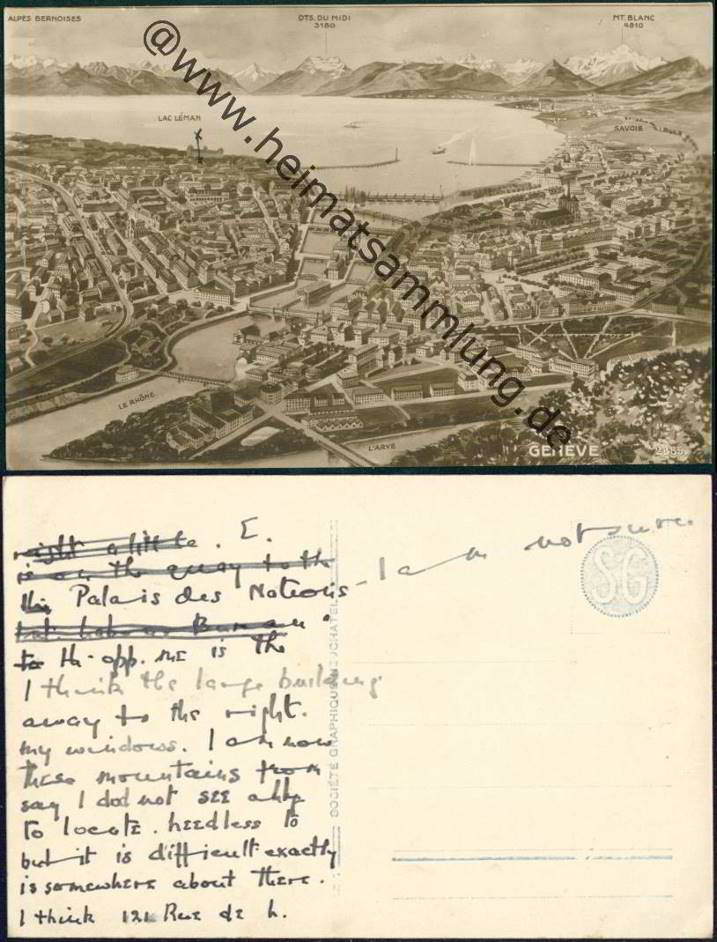 ALPES BERNOISES
DTS. DU MIDI
3180
MT. BLANC
4810
LAC LÉMAN
SAVOIE
LE RHÔNE
L'ARVE
GENÈVE
2085
@www.heimatsammlung.de
right a little. E.
is on the quay to the
the Palais des Nations - I am not sure.
but Labour Bureau.
to th opp. me is the
I think the large building
away to the right.
my windows. I am now
these mountains from
say I did not see all
to locate. needless to
but it is difficult exactly
is somewhere about there.
I think 121 Rue de L.
SOCIÉTÉ GRAPHIQUE NEUCHATEL
SG